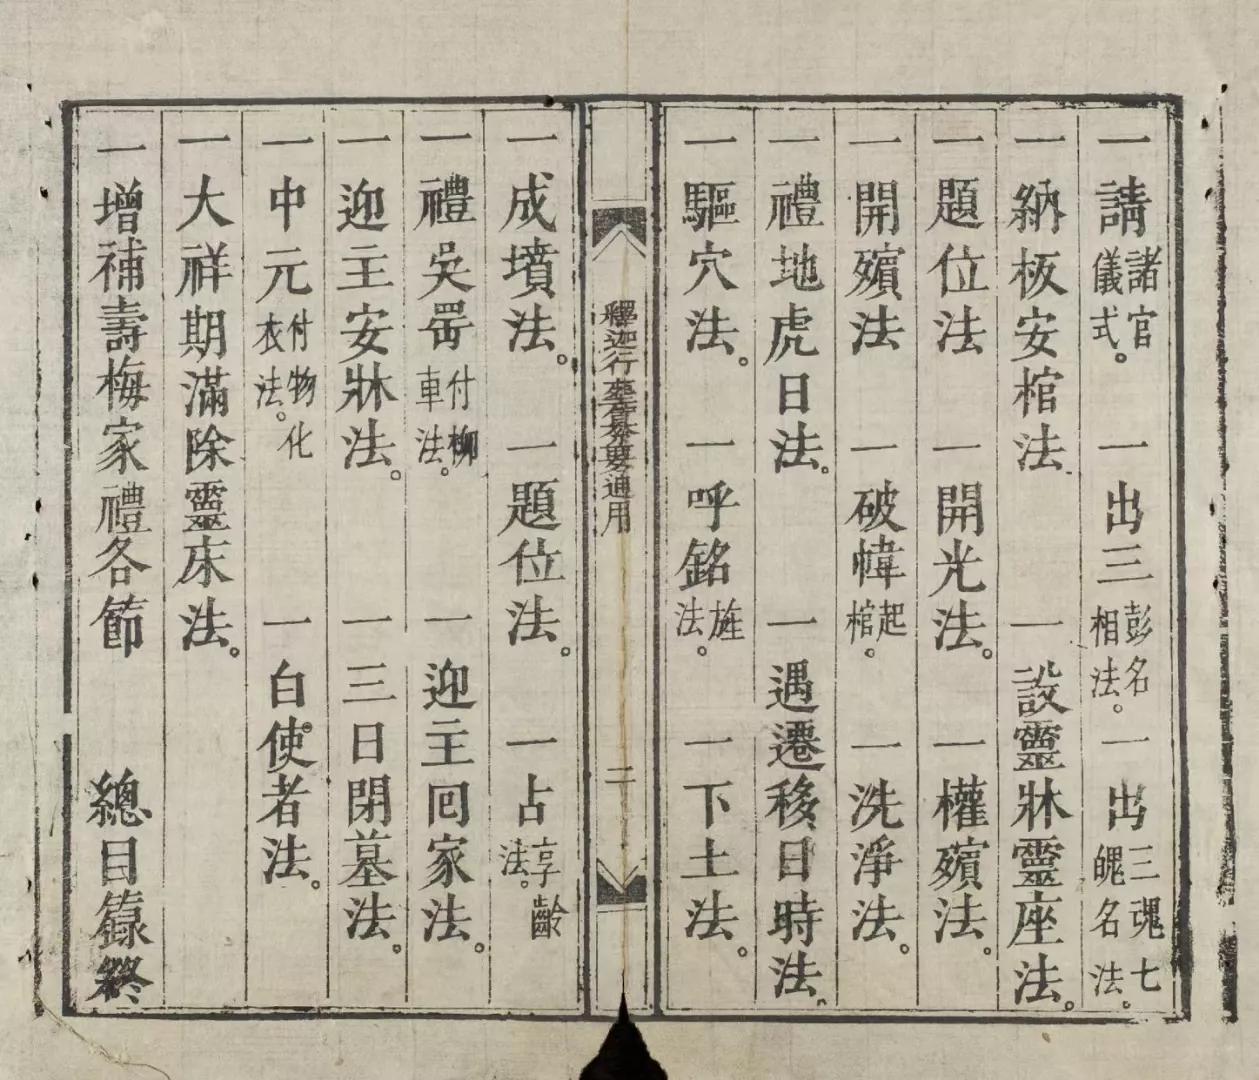 一請諸官儀式。一出三彭名相法。一出三魂七魄名法。
一納板安棺法 一設靈牀靈座法。
一題位法 一開光法。一權殯法。
一開殯法 一破幃起棺。一洗淨法。
一禮地虎日法。一遇遷移日時法
一驅穴法。一呼銘旌法。一下土法。
釋迦行 通用 二
一成墳法。一題位法。一占享齡法。
一禮吳罱付柳車法。一迎主回家法。
一迎主安牀法。一三日閉墓法。
一中元付物化衣法。一白使者法。
一大祥期滿除靈床法。
一增補壽梅家禮各節 總目錄終